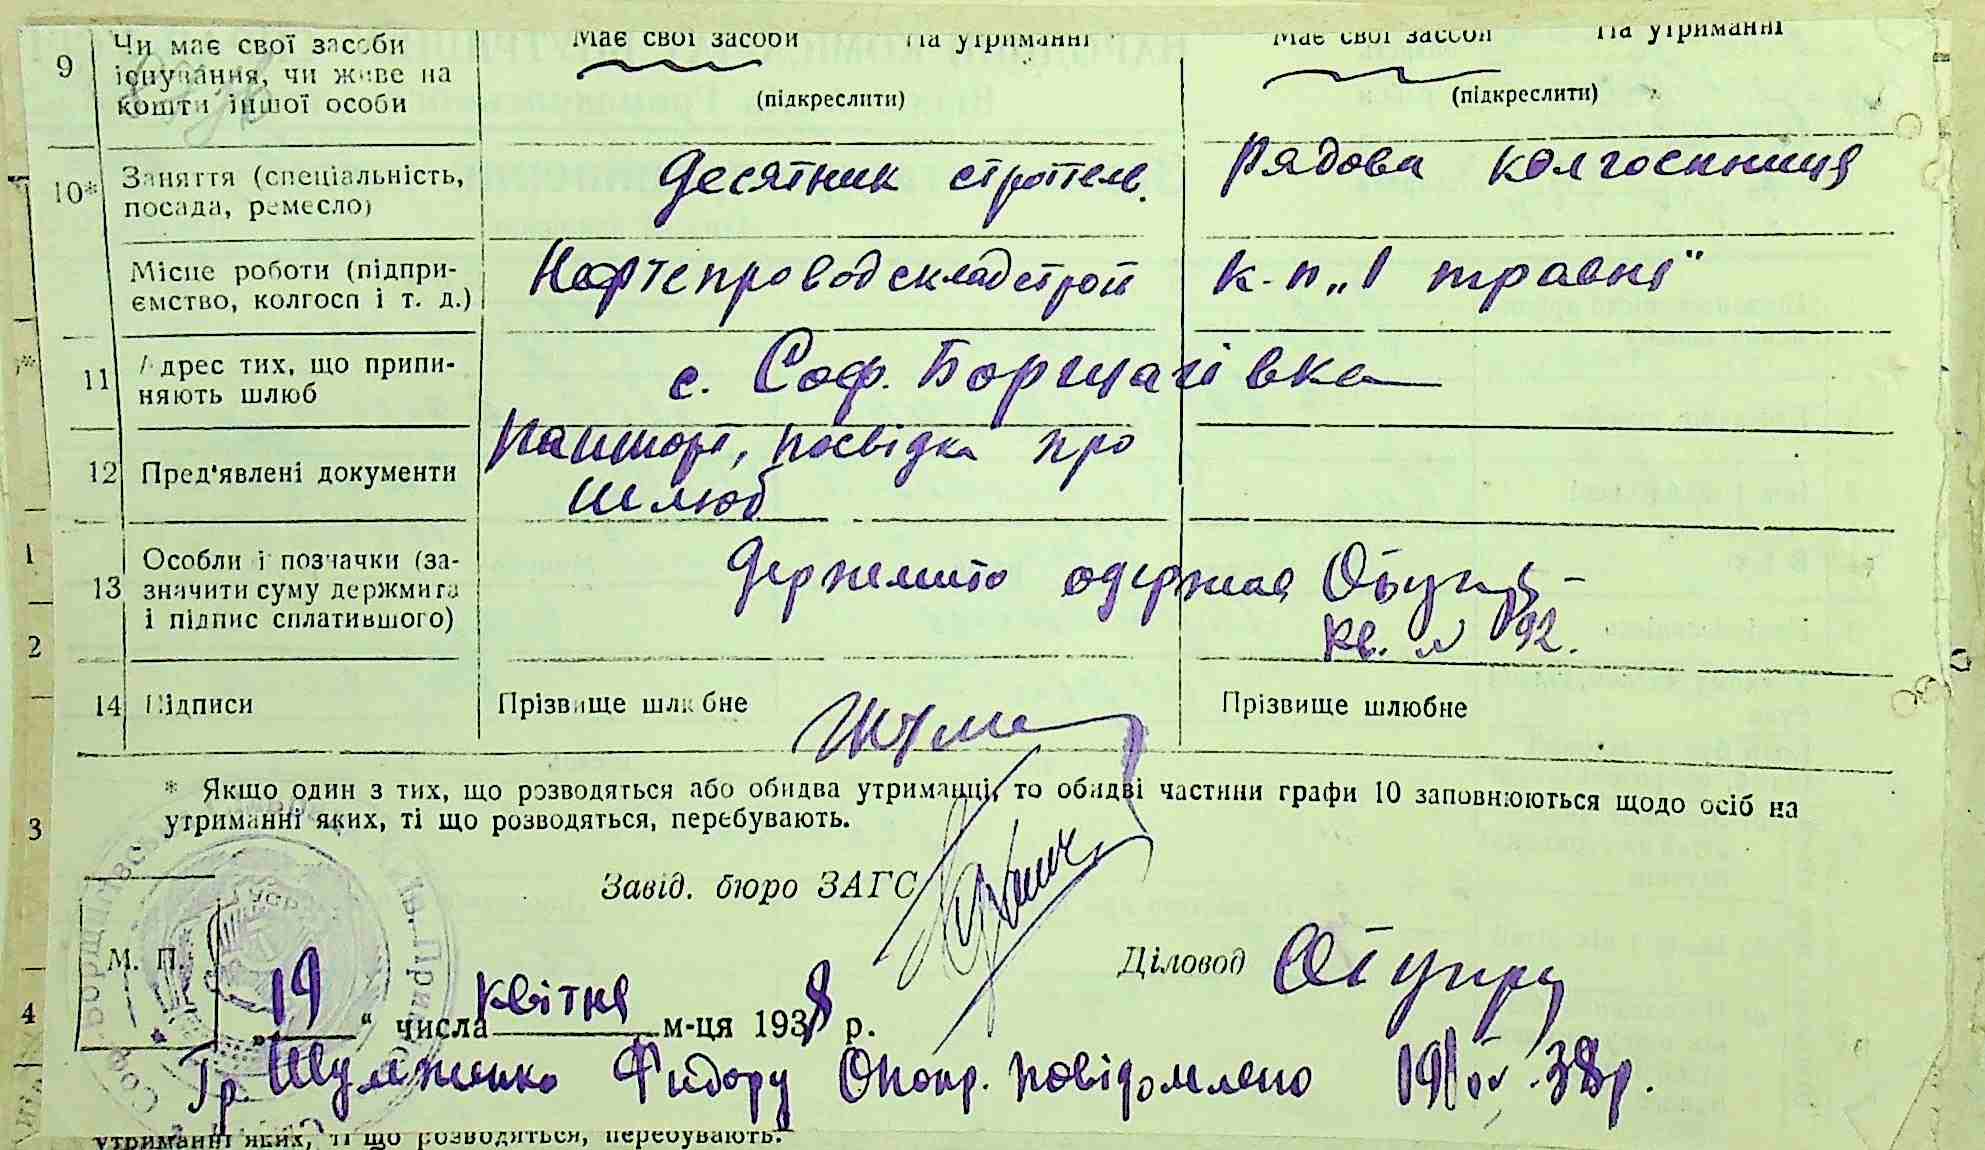 9 Чи має свої засоби існування, чи живе на кошти іншої особи
Має свої засоби На утриманні
(підкреслити)
Має свої засоби На утриманні
(підкреслити)
10* Заняття (спеціальність, посада, ремесло)
Десятник строітель.
Рядова колгоспниця
Місце роботи (підпри-
ємство, колгосп і т. д.)
Нафтепроводскладстрой
к-п „1 травня"
11 Адрес тих, що припи-
няють шлюб
с. Соф. Борщагівка
12 Пред'явлені документи
Пашпорт, посвідка про
шлюб
13 Особливі позначки (за-
значити суму держмита
і підпис сплатившого)
Держмито одержав
кв. № 92.
14 Підписи
Прізвище шлюбне
Прізвище шлюбне
* Якщо один з тих, що розводяться або обидва утриманці, то обидві частини графи 10 заповнюються щодо осіб на
утриманні яких, ті що розводяться, перебувають.
Завід. бюро ЗАГС
М. П.
Діловод
„19" числа квітня м-ця 1938 р.
Гр. Шуляженко Фидору Опонр. повідомлено 19/IV.38р.
утриманні яких, ті що розводяться, перебувають.
1
2
3
4